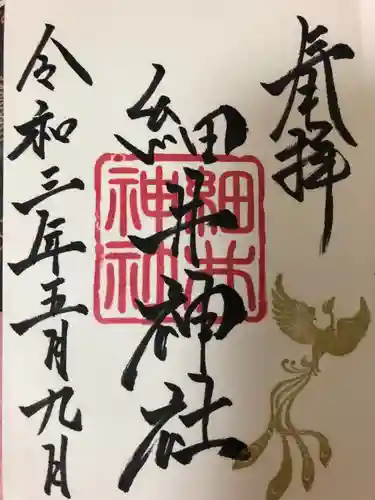 奉拝
細井神社
細井神社
令和三年五月九月